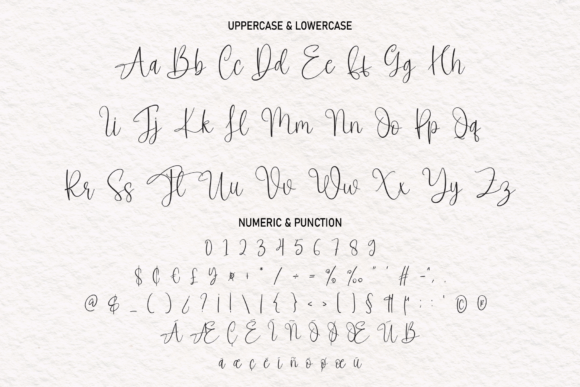 UPPERCASE & LOWERCASE
Aa Bb Cc Dd Ee Ff Gg Hh
Ii Jj Kk Ll Mm Nn Oo Pp Qq
Rr Ss Tt Uu Vv Ww Xx Yy Zz
NUMERIC & PUNCTION
0 1 2 3 4 5 6 7 8 9
$ ₵ € £ ¥ ¤ + * / ÷ = % ‰ " ' # - ~ , .
@ & _ ( ) ¿ ? ¡ ! \ | { } < > [ ] § ¶ : ; ' © ®
À Æ Ç È Ì Ñ Ò Ø Œ Ù ß
à æ ç è ì ñ ò ø œ ù